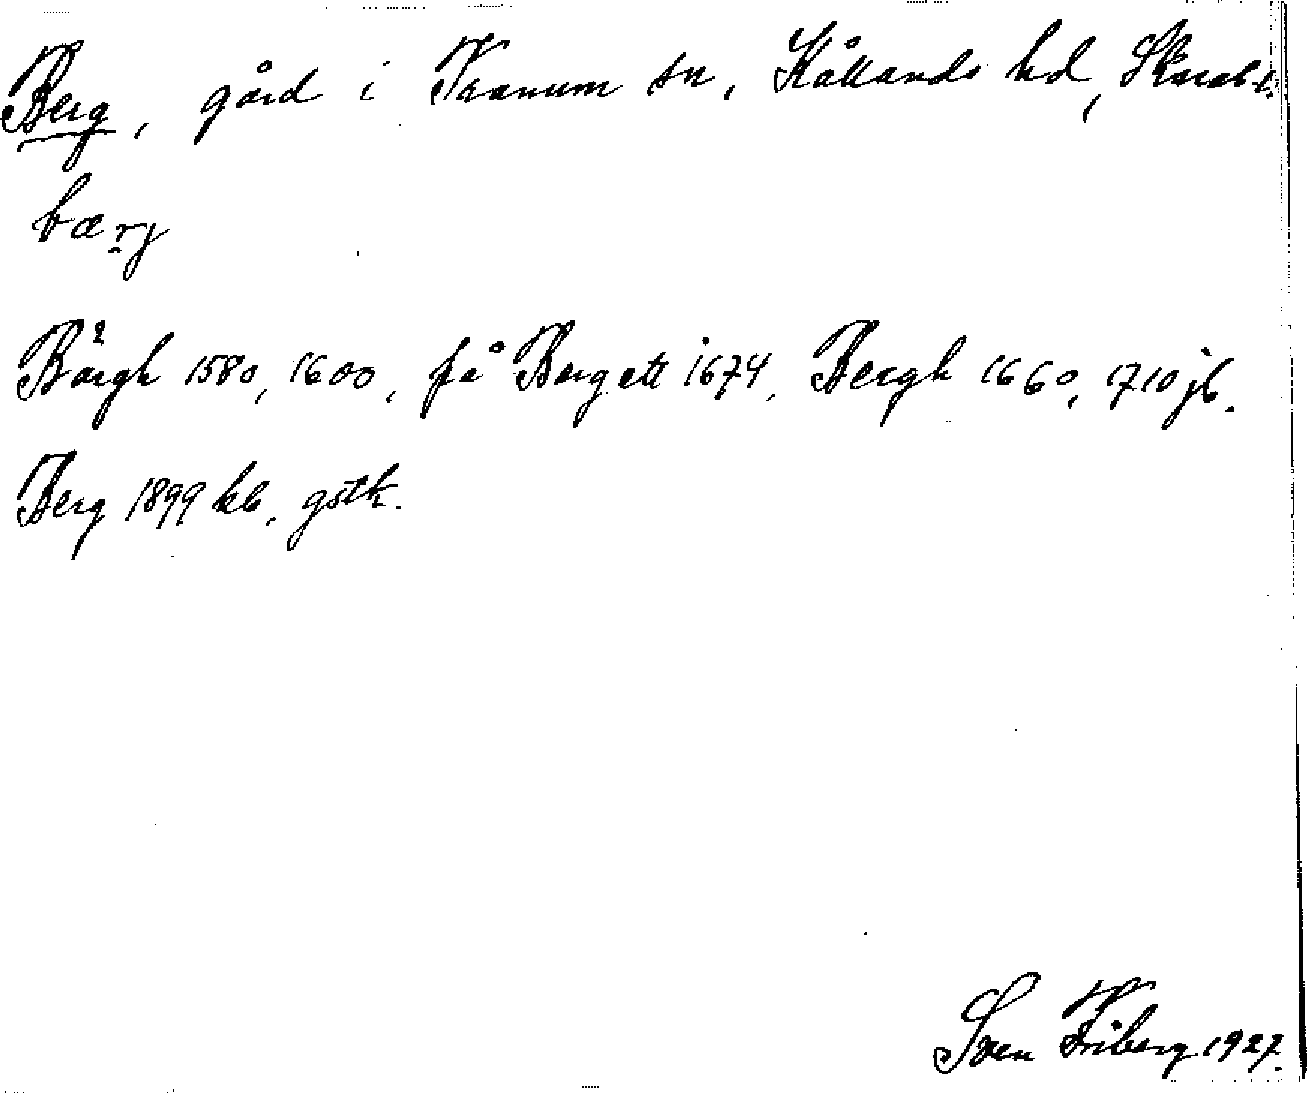 Berg, gård i Tranum sn, Kållands hd, Skarab. l.
bærj
Bårgh 1580, 1600, på Berg ett 1674, Bergh 1660, 1710 jb.
Berg 1899 kb, gstk.
Sven Friberg 1927.